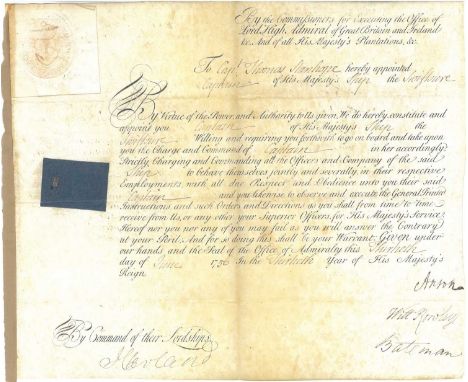 By the Commissioners for Executing the Office of
Lord High Admiral of Great Britain and Ireland
&c. And of all His Majesty's Plantations, &c.
To Capt. Thomas Stanhope hereby appointed
Captain of His Majesty's Ship the Swiftsure
By Virtue of the Power and Authority to Us given We do hereby constitute and
appoint you Captain of His Majesty's Ship the
Swiftsure Willing and requiring you forthwith to go on board and take upon
you the Charge and Command of Captain in her accordingly
Strictly Charging and Commanding all the Officers and Company of the said
Ship to behave themselves jointly and severally in their respective
Employments with all due Respect and Obedience unto you their said
Captain and you likewise to observe and execute the General Printed
Instructions and such Orders and Directions as you shall from time to time
receive from Us, or any other your Superior Officers, for His Majesty's Service
Hereof nor you nor any of you may fail as you will answer the Contrary
at your Peril. And for so doing this shall be your Warrant. Given under
our hands and the Seal of the Office of Admiralty this Thirtieth
day of June 1756 In the Thirtieth Year of His Majesty's
Reign.
Anson
Will Rowley
Bateman
By Command of their Lordships
J Clevland